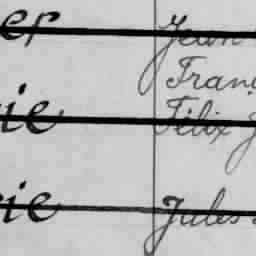 er Jean
Franç
ie Félix J
ie Jules